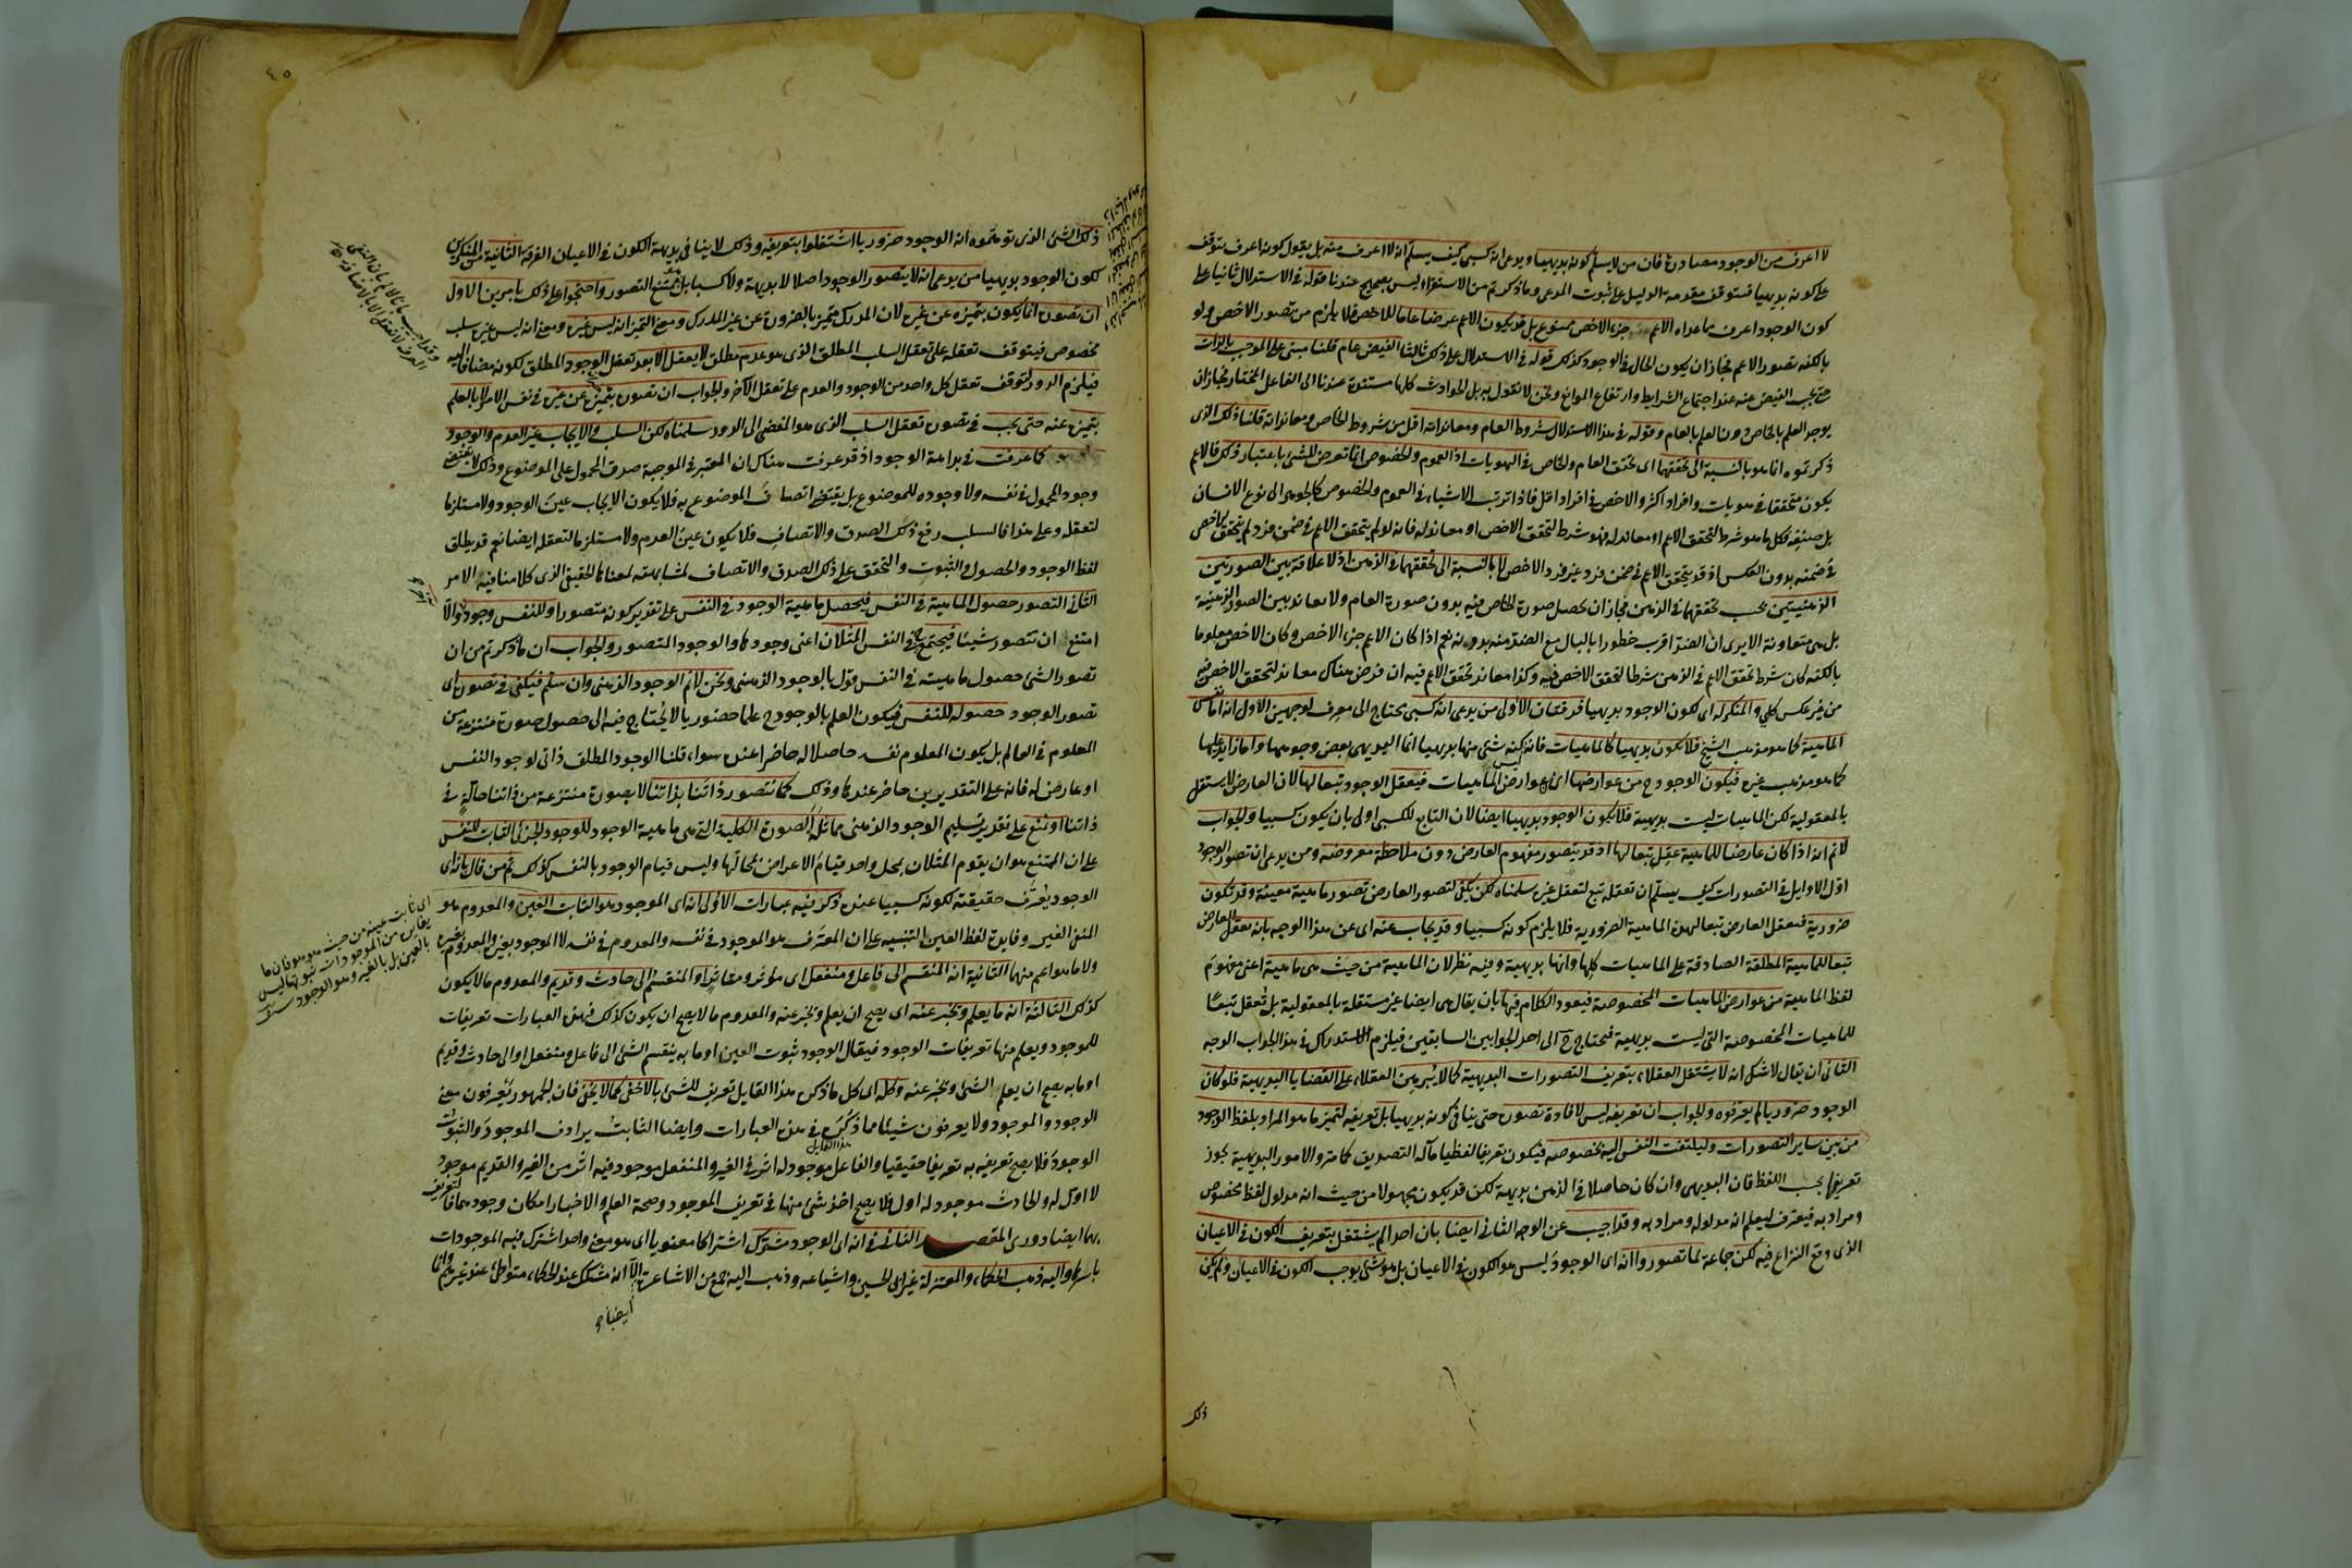 لا اعرف من الوجود مصادرة فان من لا يسلم كونه بديهيا ويدعى انه كسبى كيف يسلم انه لا اعرف منه بل يقول كونه اعرف يتوقف
على كونه بديهيا فيتوقف مقدمة الدليل على ثبوت المدعى وما ذكرتم من الاستقراء ليس بصحيح عندنا قوله فى الاستدلال ثانيا على
كون الوجود اعرف مما عداه الاعم جزء الاخص ممنوع بل قد يكون الاعم عرضا عاما للاخص فلا يلزم من تصور الاخص ولو
بالكنه تصور الاعم فجاز ان يكون الحال فى الوجود كذلك قوله فى الاستدلال على ذلك ثالثا الفيض عام قلنا مبنى على الموجب بالذات
حتى يجب الفيض عنه عند اجتماع الشرايط وارتفاع الموانع ونحن لا نقول به بل الحوادث كلها مستندة عندنا الى الفاعل المختار فجاز ان
يوجد العلم بالخاص دون العلم بالعام وقوله فى هذا الاستدلال شروط العام ومعانداته اقل من شروط الخاص ومعانداته قلنا ذلك الذى
ذكرتموه انما هو بالنسبة الى تحققهما اى تحقق العام والخاص فى الهويات اذ العموم والخصوص انما تعرض للشئ باعتبار ذلك فالاعم
يكون متحققا فى هويات وافراد اكثر والاخص فى افراد اقل فاذا ترتب الاشياء فى العموم والخصوص كالجوهر الى نوع الانسان
بل صنفه فكل ما هو شرط لتحقق الاعم او معاند له فهو شرط لتحقق الاخص او معاند له فانه لو لم يتحقق الاعم فى ضمن فرد لم يتحقق الاخص
فى ضمنه بدون العكس اذ قد يتحقق الاعم فى ضمن فرد غير فرد الاخص لا بالنسبة الى تحققهما فى الذهن اذ لا علاقة بين الصورتين
الذهنيتين بحسب تحققهما فى الذهن فجاز ان تحصل صورة الخاص فيه بدون صورة العام ولا معاندة بين الصور الذهنية
بل هى متعاونة الا يرى ان الضد اقرب خطورا بالبال مع الضد منه بدونه نعم اذا كان الاعم جزء الاخص وكان الاخص معلوما
بالكنه كان شرط تحقق الاعم فى الذهن شرطا لتحقق الاخص فيه وكذا معاند تحقق الاعم فيه ان فرض هناك معاند لتحقق الاخص فيه
من غير عكس كلى والمنكر له اى لكون الوجود بديهيا فرقتان الاولى من يدعى انه كسبى يحتاج الى معرف لوجهين الاول انه اما نفس
الماهية كما هو مذهب الشيخ فلا يكون بديهيا كالماهيات فانه ليس كنه شئ منها بديهيا انما البديهى بعض وجوهها واما زايد عليها
كما هو مذهب غيره فيكون الوجود ح من عوارضها اى عوارض الماهيات فيعقل الوجود تبعا لها لان العارض لا يستقل
بالمعقولية لكن الماهيات ليست بديهية فلا يكون الوجود بديهيا ايضا لان التابع للكسبى اولى بان يكون كسبيا والجواب
لا نم انه اذا كان عارضا للماهية عقل تبعا لها اذ قد يتصور مفهوم العارض دون ملاحظة معروضه ومن يدعى ان تصور الوجود
اول الاوايل فى التصورات كيف يسلم ان تعقله تبع لتعقل غيره سلمناه لكن يكفى لتصور العارض تصور ماهية معينة وقد تكون
ضرورية فيعقل العارض تبعا لهذه الماهية الضرورية فلا يلزم كونه كسبيا وقد يجاب عنه اى عن هذا الوجه بانه يعقل العارض
تبعا للماهية المطلقة الصادقة على الماهيات كلها وانها بديهية وفيه نظر لان الماهية من حيث هى ماهية اعنى مفهوم
لفظ الماهية من عوارض الماهيات المخصوصة فيعود الكلام فيها بان يقال هى ايضا غير مستقلة بالمعقولية بل تعقل تبعا
للماهيات المخصوصة التى ليست بديهية فيحتاج ح الى احد الجوابين السابقين فيلزم الاستدراك فى هذا الجواب الوجه
الثانى ان يقال لا شك انه لا يشتغل العقلاء بتعريف التصورات البديهية كما لا يبرهن العقلاء على القضايا البديهية فلو كان
الوجود ضروريا لم يعرفوه والجواب ان تعريفه ليس لافادة تصوره حتى ينافى كونه بديهيا بل تعريفه لتميز ما هو المراد بلفظ الوجود
من بين ساير التصورات وليلتفت النفس اليه بخصوصه فيكون تعريفا لفظيا مآله التصديق كما مر والامور البديهية يجوز
تعريفها بحسب اللفظ فان البديهى وان كان حاصلا فى الذهن بديهة لكن قد يكون مجهولا من حيث انه مدلول لفظ مخصوص
ومراد به فيعرف ليعلم انه مدلوله ومراد به وقد اجيب عن الوجه الثانى ايضا بان احدا لم يشتغل بتعريف الكون فى الاعيان
الذى وقع النزاع فيه لكن جماعة لما تصوروا انه اى الوجود ليس هو الكون فى الاعيان بل هو شئ يوجب الكون فى الاعيان ولم يكن
ذلك
٤٥
ذلك الشئ الذى توهموه انه الوجود ضروريا اشتغلوا بتعريفه وذلك لا ينافى بديهة الكون فى الاعيان الفرقة الثانية من المنكرين
لكون الوجود بديهيا من يدعى انه لا يتصور الوجود اصلا لا بديهة ولا كسبا بل هو ممتنع التصور واحتجوا على ذلك بامرين الاول
ان تصوره انما يكون بتميزه عن غيره لان المدرك متميز بالضرورة عن غير المدرك ومعنى التميز انه ليس غيره ومعنى انه ليس غيره سلب
مخصوص فيتوقف تعقله على تعقل السلب المطلق الذى هو عدم مطلق لا يعقل الا بعد تعقل الوجود المطلق لكونه مضافا اليه
فيلزم الدور لتوقف تعقل كل واحد من الوجود والعدم على تعقل الآخر والجواب ان تصوره بتميزه عن غيره فى نفس الامر لا بالعلم
بتميزه عنه حتى يجب فى تصوره تعقل السلب الذى هو المفضى الى الدور سلمناه لكن السلب والايجاب غير العدم والوجود
كما عرفت فى بداهة الوجود اذ قد عرفت هناك ان المعتبر فى الموجبة صدق المحمول على الموضوع وذلك لا يقتضى
وجود المحمول فى نفسه ولا وجوده للموضوع بل يقتضى اتصاف الموضوع به فلا يكون الايجاب عين الوجود ولا مستلزما
لتعقله وعلى هذا فالسلب رفع ذلك الصدق والاتصاف فلا يكون عين العدم ولا مستلزما لتعقله ايضا نعم قد يطلق
لفظ الوجود والحصول والثبوت والتحقق على ذلك الصدق والاتصاف لمشابهته لمعناها الحقيقى الذى كلامنا فيه الامر
الثانى التصور حصول الماهية فى النفس فيحصل ماهية الوجود فى النفس على تقدير كونه متصورا وللنفس وجود والا
امتنع ان تتصور شيئا فيجتمع ح فى النفس المثلان اعنى وجودها والوجود المتصور والجواب ان ما ذكرتم من ان
تصور الشئ حصول ماهيته فى النفس قول بالوجود الذهنى ونحن لا نم الوجود الذهنى وان سلم فيكفى فى تصوره اى
تصور الوجود حصوله للنفس فيكون العلم بالوجود ح علما حضوريا لا يحتاج فيه الى حصول صورة منتزعة من
المعلوم فى العالم بل يكون المعلوم نفسه حاصلا له حاضرا عنده سواء قلنا الوجود المطلق ذاتى لوجود النفس
او عارض له فانه على التقديرين حاضر عندها وذلك كما نتصور ذاتنا بذاتنا لا بصورة منتزعة من ذاتنا حالة فى
ذاتنا او نمنع على تقدير تسليم الوجود الذهنى مماثلة الصورة الكلية التى هى ماهية الوجود للوجود الجزئى الثابت للنفس
على ان الممتنع هو ان يقوم المثلان بمحل واحد قيام الاعراض بمحالها وليس قيام الوجود بالنفس كذلك ثم من قال بانه اى
الوجود يعرف حقيقته لكونه كسبيا عنده ذكر فيه عبارات الاولى انه اى الموجود هو الثابت العين والمعدوم هو
المنفى العين وفايدة لفظ العين التنبيه على ان المعرف هو الموجود فى نفسه والمعدوم فى نفسه لا الموجود بغيره والمعدوم بغيره
ولا ما هو اعم منهما الثانية انه المنقسم الى فاعل ومنفعل اى مؤثر ومتاثر او المنقسم الى حادث وقديم والمعدوم ما لا يكون
كذلك الثالثة انه ما يعلم ويخبر عنه اى يصح ان يعلم ويخبر عنه والمعدوم ما لا يصح ان يكون كذلك فهذه العبارات تعريفات
للموجود ويعلم منها تعريفات الوجود فيقال الوجود ثبوت العين او ما به ينقسم الشئ الى فاعل ومنفعل او الى حادث وقديم
او ما به يصح ان يعلم الشئ ويخبر عنه وكله اى كل ما ذكره هذا القايل تعريف للشئ بالاخفى كما لا يخفى فان الجمهور يعرفون معنى
الوجود والموجود ولا يعرفون شيئا مما ذكر فى هذه العبارات وايضا الثابت يرادف الموجود والثبوت
هذا القايل
الوجود فلا يصح تعريفه به تعريفا حقيقيا والفاعل موجود له اثر فى الغير والمنفعل موجود فيه اثر من الغير والقديم موجود
لا اول له والحادث موجود له اول فلا يصح اخذ شئ منها فى تعريف الموجود وصحة العلم والاخبار امكان وجودهما فالتعريف
بهما ايضا دورى المقصد الثانى فى انه اى الوجود مشترك اشتراكا معنويا اى هو معنى واحد اشترك فيه الموجودات
باسرها واليه ذهب الحكماء والمعتزلة غير ابى الحسين واشياعه وذهب اليه جمع من الاشاعرة الا انه مشكك عند الحكماء متواطئ عند غيرهم وانما
ايضا
وقد اجيب بانا لا نم بان النفى
الصرف لا تعقل الا بالاضافة
اى ثابت عينه من حيث هو هو فان ما
يقابله من الموجودات ثبوتها ليس
بالعين بل بالغير وهو الوجود